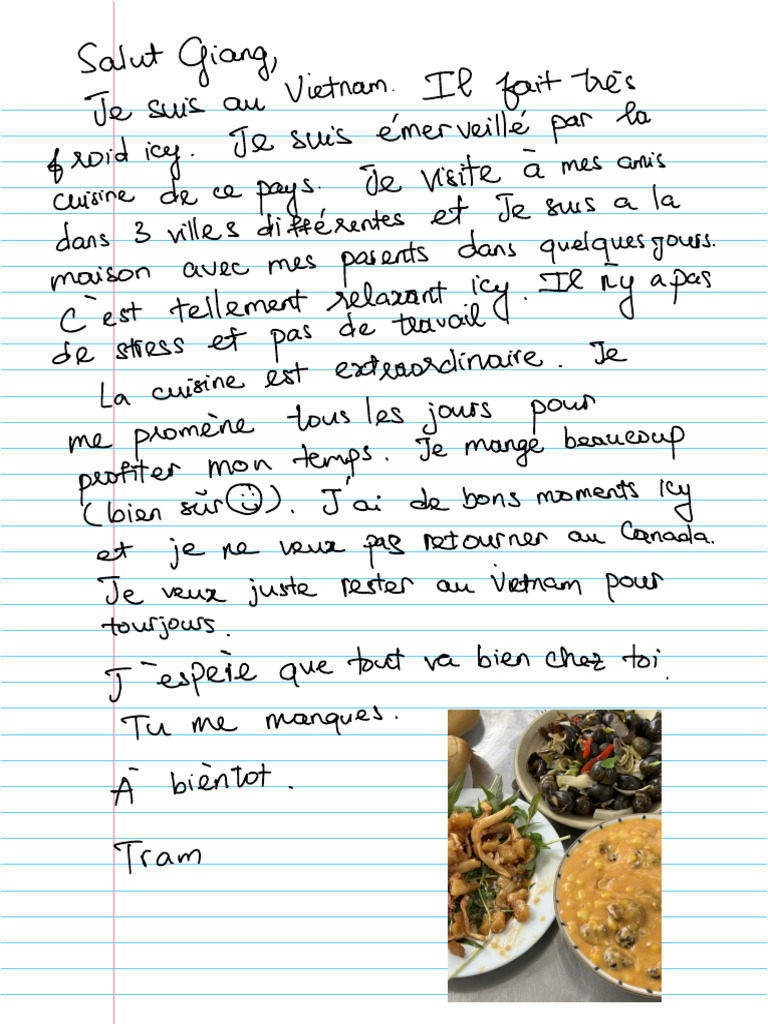 Salut Giang,
Je suis au Vietnam. Il fait très
froid icy. Je suis émerveillé par la
cuisine de ce pays. Je visite à mes amis
dans 3 villes différentes et Je suis a la
maison avec mes parents dans quelques jours.
C'est tellement relaxant icy. Il n'y a pas
de stress et pas de travail
La cuisine est extraordinaire. Je
me promène tous les jours pour
profiter mon temps. Je mange beaucoup
(bien sûr ☺). J'ai de bons moments icy
et je ne veux pas retourner au Canada.
Je veux juste rester au Vietnam pour
tourjours.
J'espère que tout va bien chez toi.
Tu me manques.
À bientot.
Tram